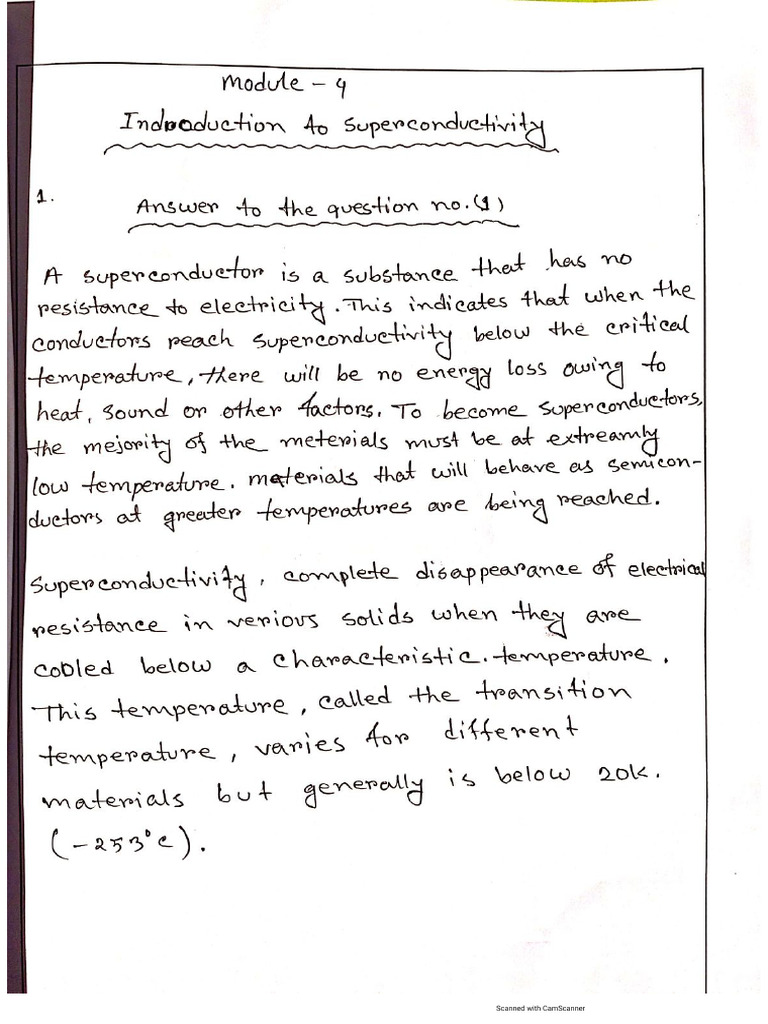 Module - 4
Indroduction to superconductivity
1.
Answer to the question no.(1)
A superconductor is a substance that has no
resistance to electricity. This indicates that when the
conductors reach superconductivity below the critical
temperature, there will be no energy loss owing to
heat, sound or other factors. To become superconductors,
the mejority of the meterials must be at extreamly
low temperature. materials that will behave as semicon-
ductors at greater temperatures are being reached.
Superconductivity, complete disappearance of electrical
resistance in verious solids when they are
cooled below a characteristic. temperature.
This temperature, called the transition
temperature, varies for different
materials but generally is below 20k.
(-253°c).
Scanned with CamScanner